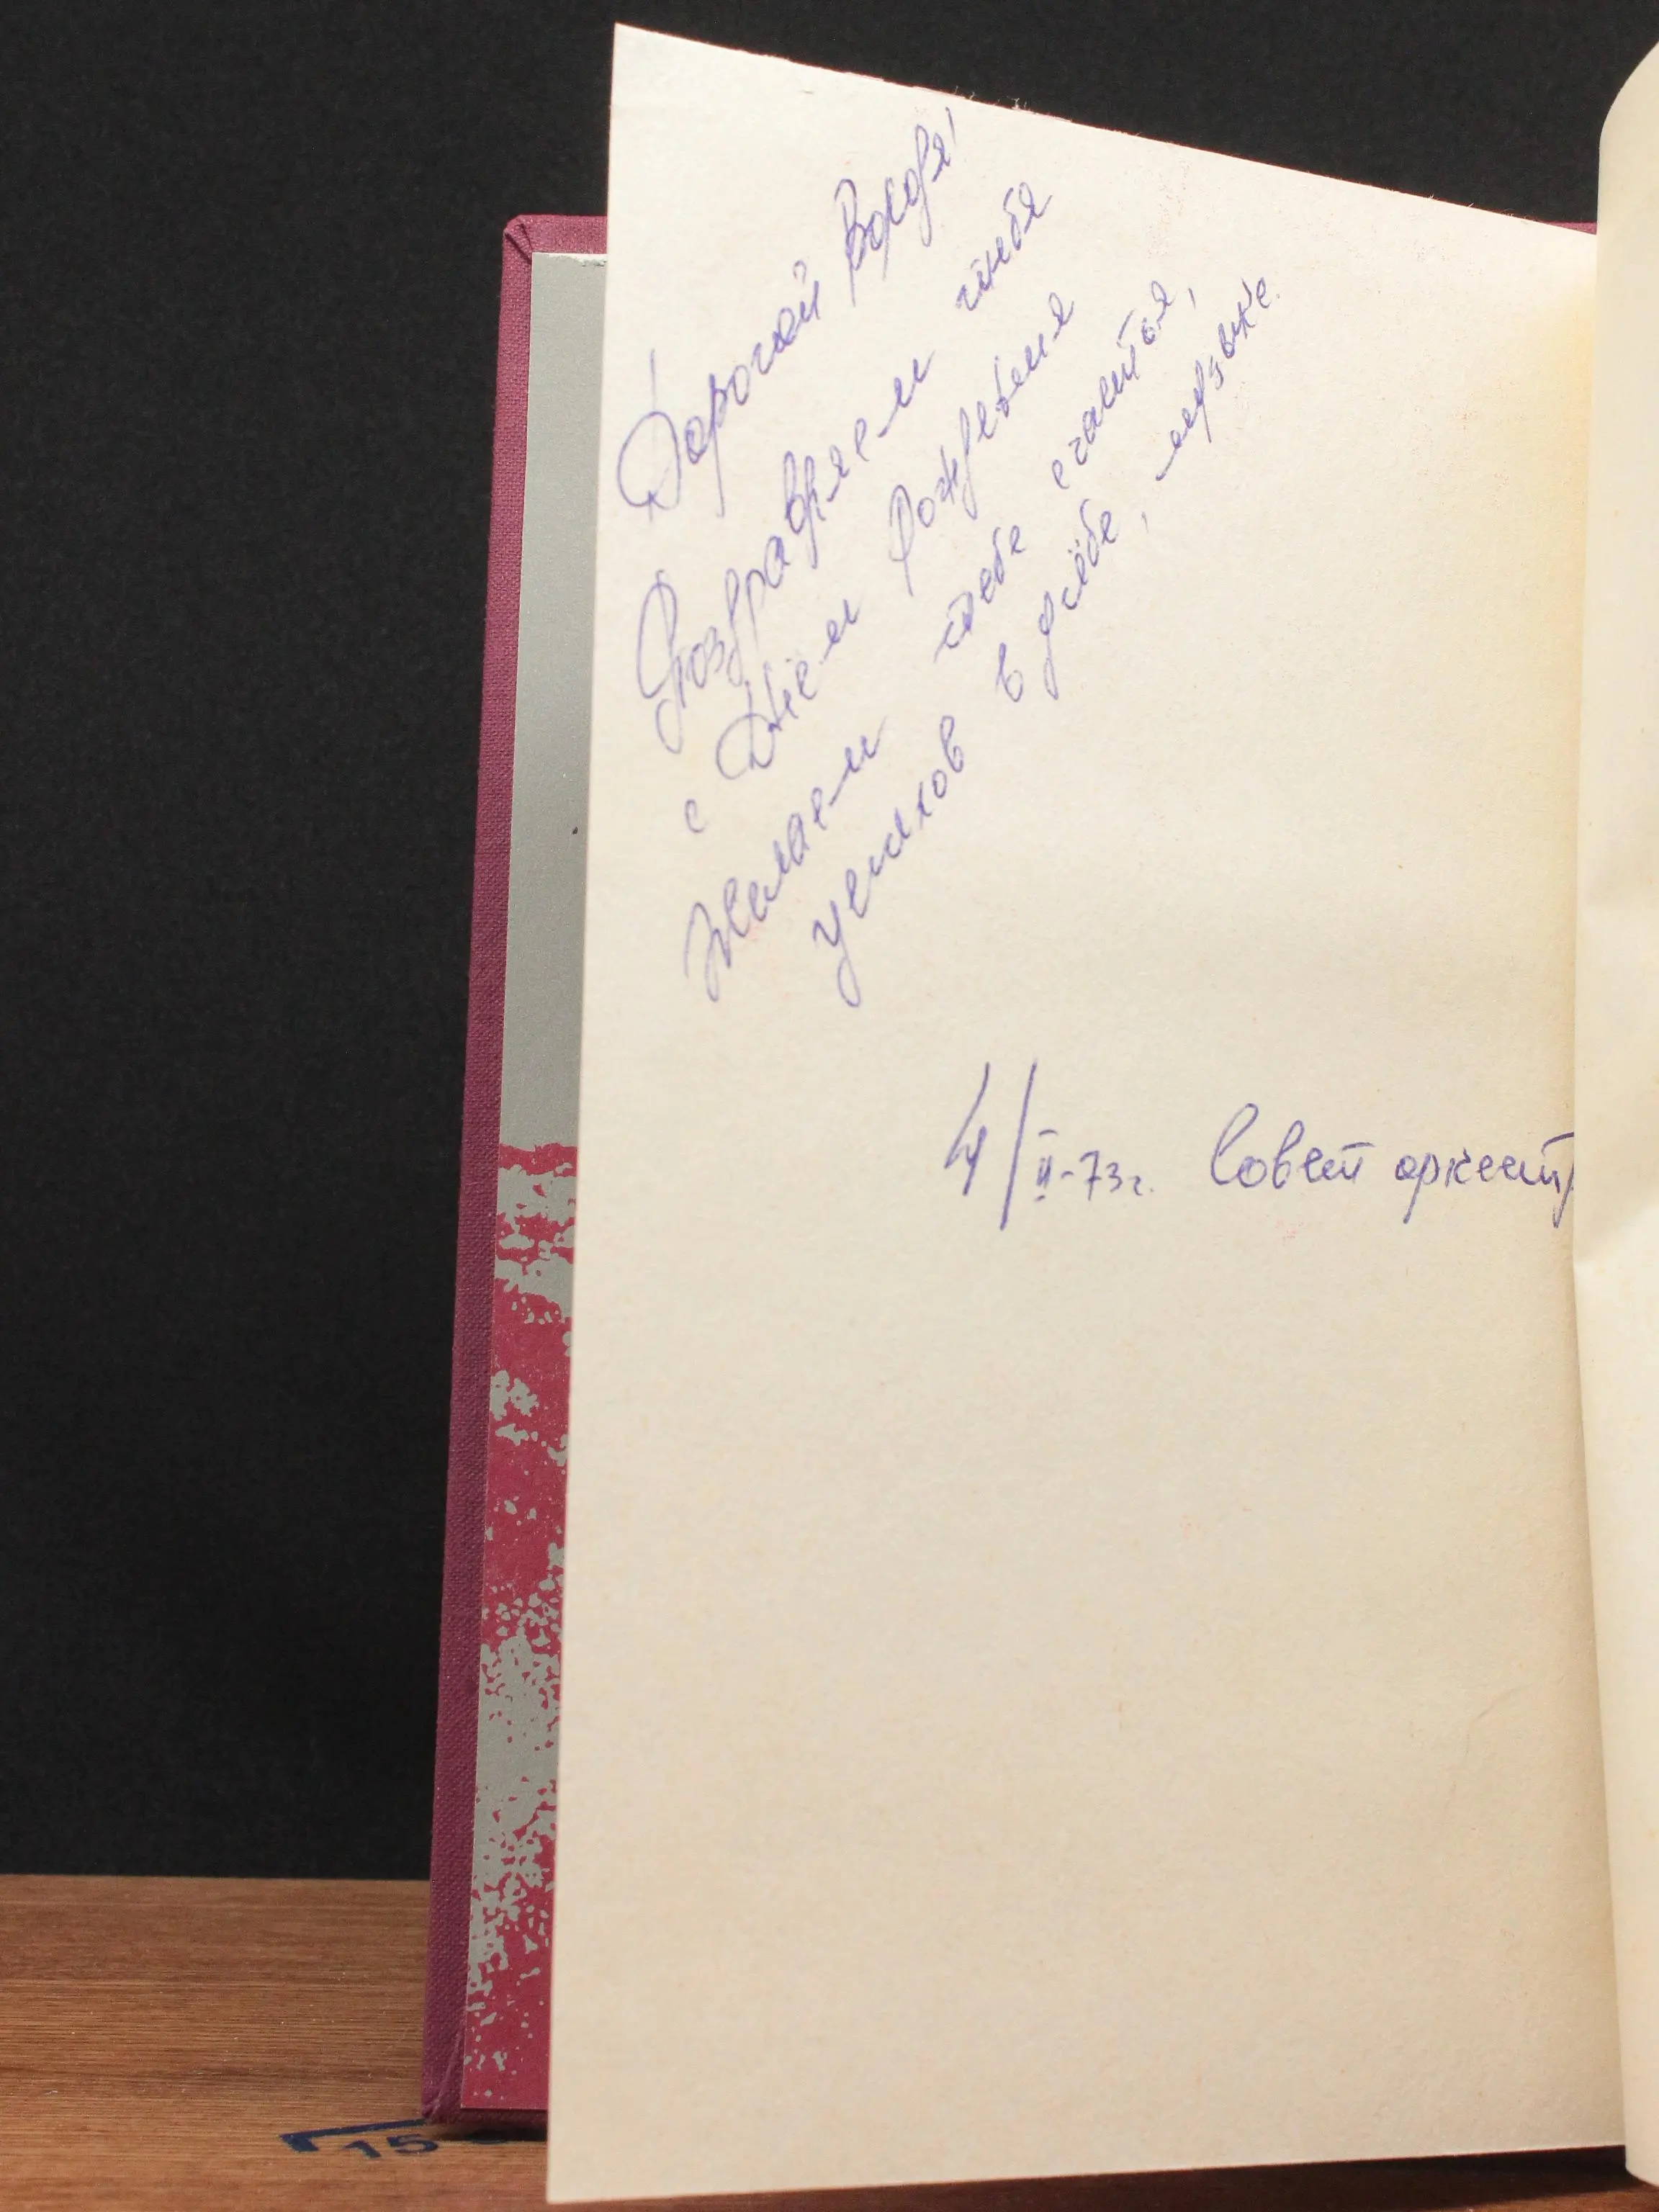 Дорогой Володя!
Поздравляем тебя
с Днём Рождения
Желаем тебе счастья,
успехов в учёбе, музыке.
4/II-73г. Совет оркестр
15